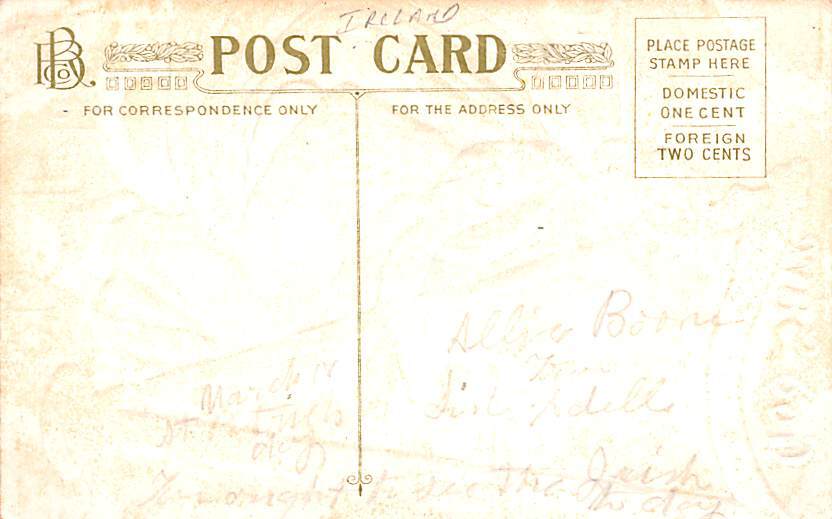 IRELAND
BB Co
POST CARD
PLACE POSTAGE
STAMP HERE
DOMESTIC
ONE CENT
FOREIGN
TWO CENTS
FOR CORRESPONDENCE ONLY
FOR THE ADDRESS ONLY
Boone
from
March 18
day
to see the Irish
to day